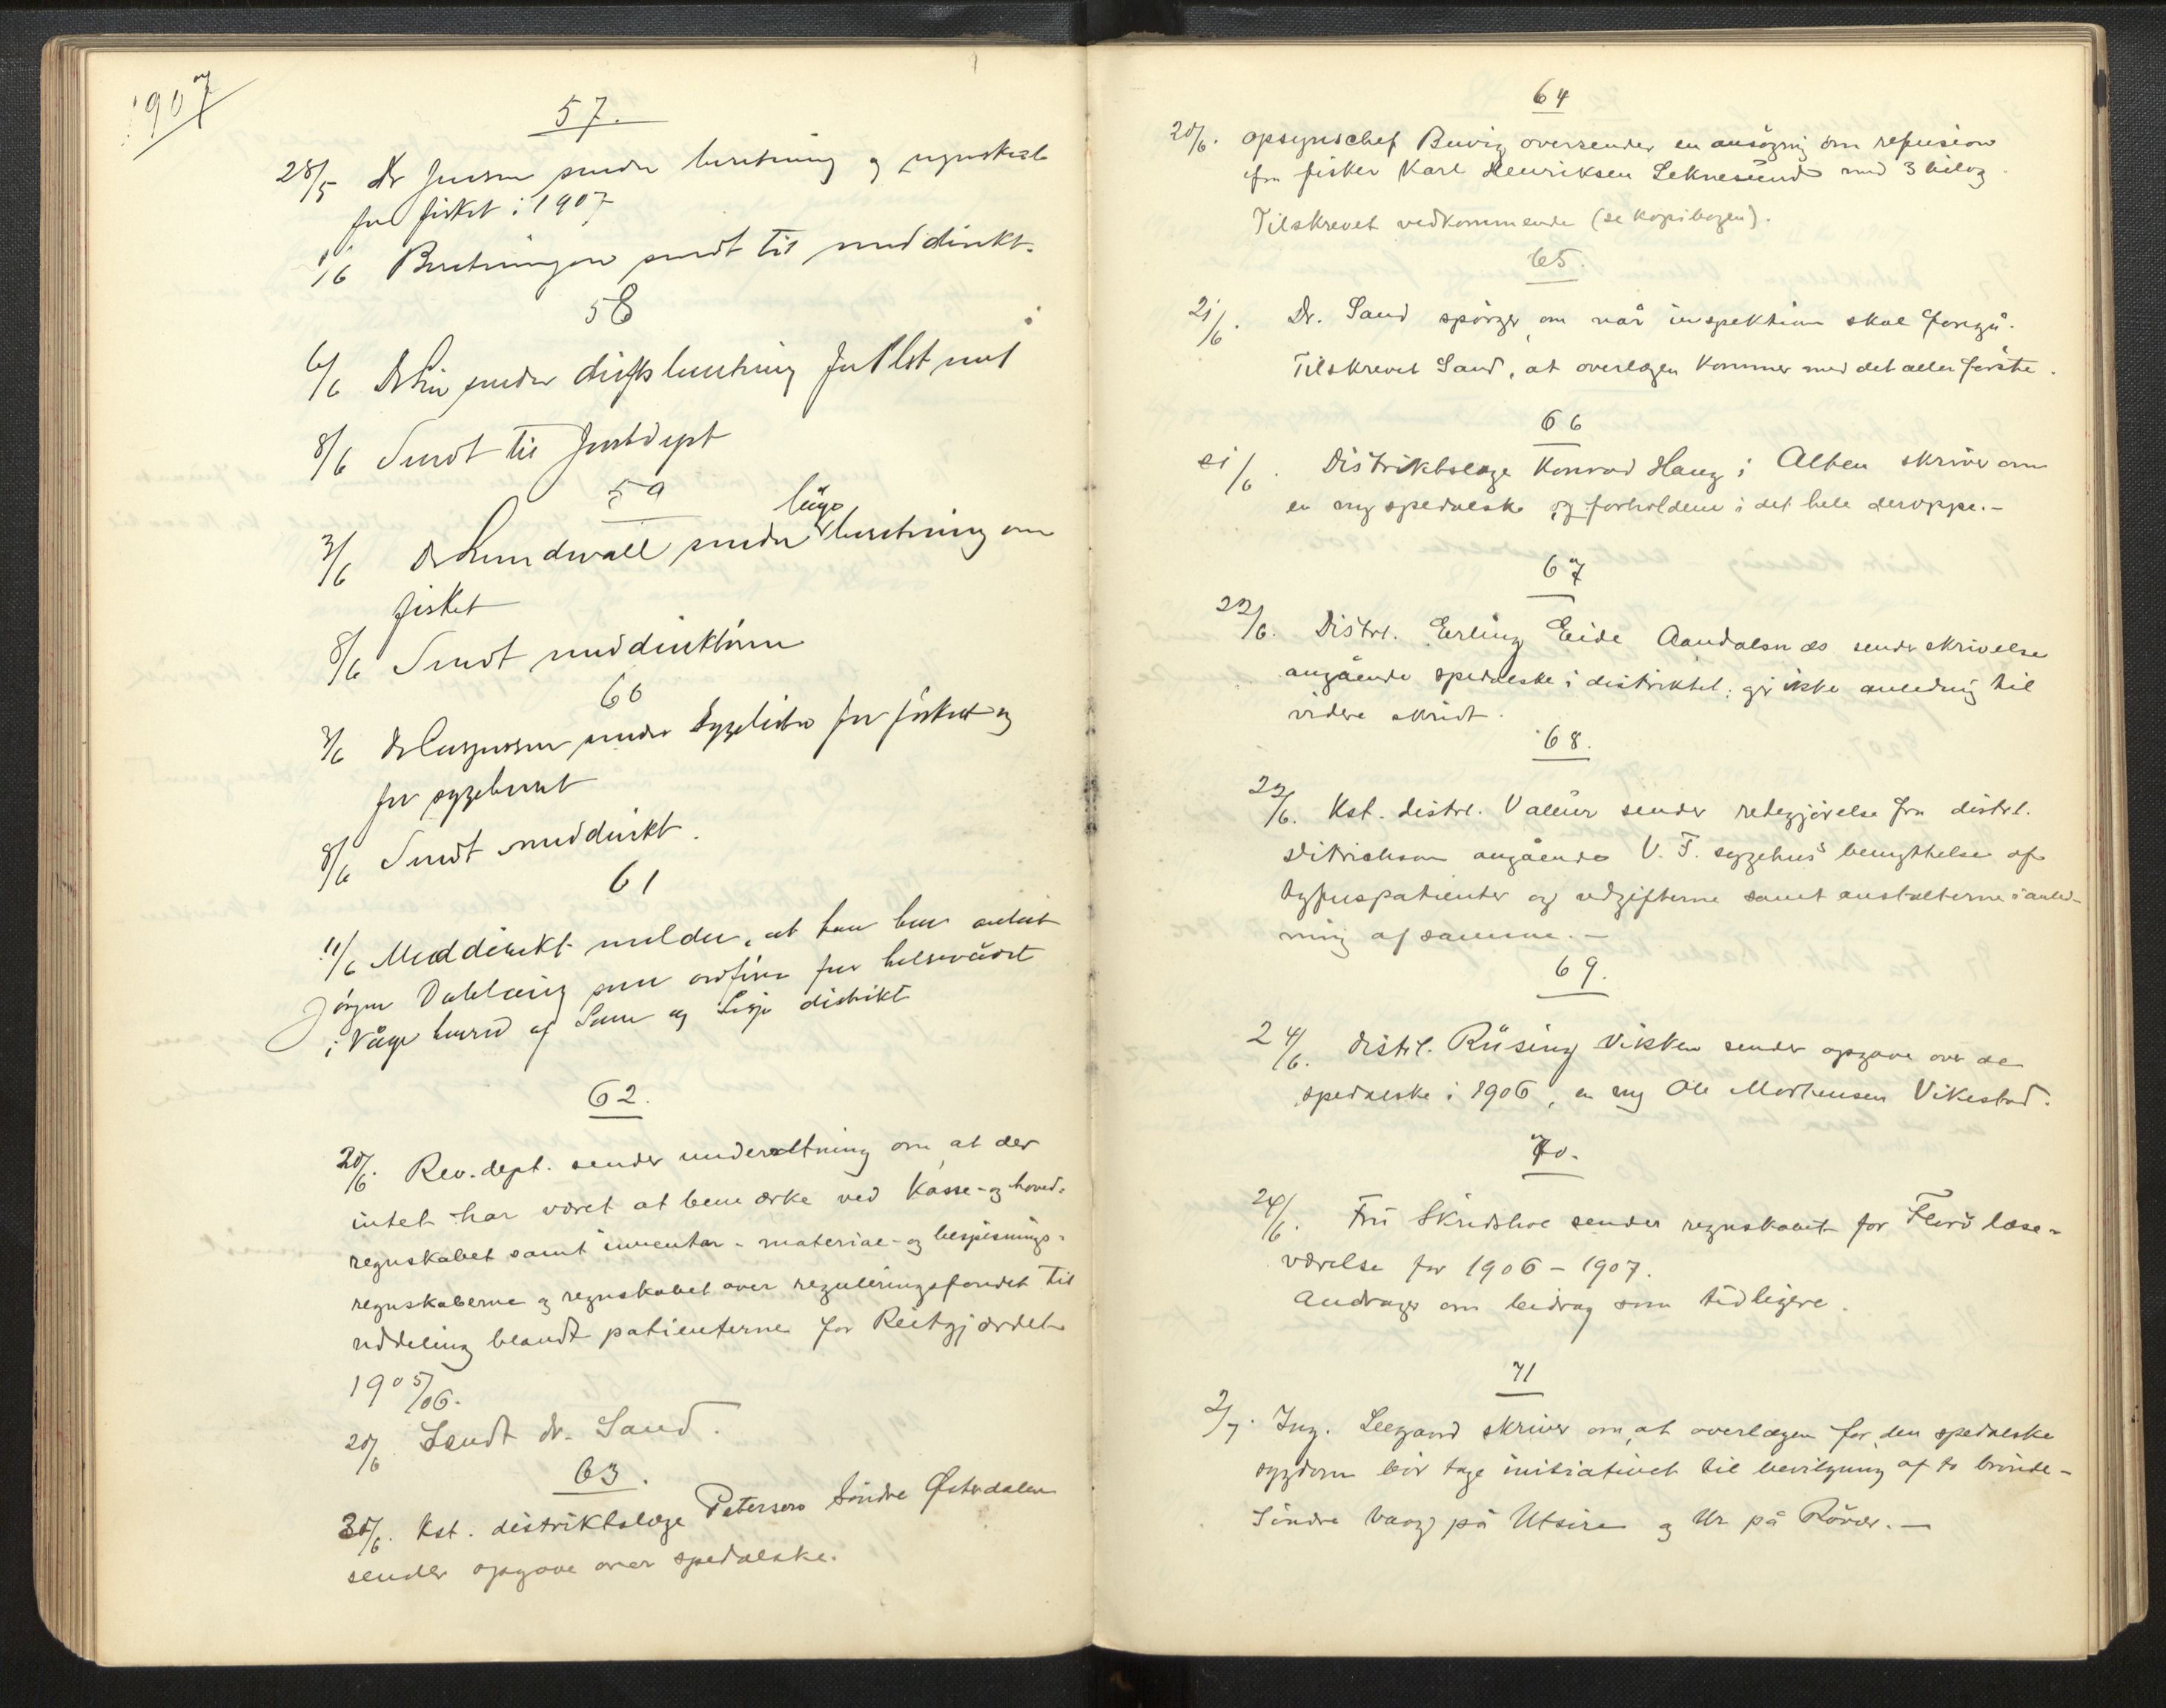 1907
57.
28/5 Dr Jensen sender beretning og regnskab
for fisket i 1907
1/6 Beretningen sendt til meddirekt.
58
6/6 Dr Lie sender
8/6 Sendt til Justdept
59
3/6 Dr Lundwall sender læge beretning om
fisket
8/6 Sendt meddirektören
60
3/6 Dr sender Sygelister for fisket og
for sygehuset
8/6 Sendt meddirekt.
61
11/6 Meddirekt melder, at han har
Jörgen som ordförer for helserådet
i Våge herred af og distrikt
62.
20/6. Rev.dept. sender underretning om at der
intet har været at bemærke ved Kasse- og hoved-
regnskabet samt inventar- material- og bespisnings-
regnskaberne og regnskabet over reguleringsfondet til
uddeling blandt patienterne for Reitgjærdet
1905/06.
20/6. Sendt dr. Sand.
63.
20/6. Kst. distriktslæge Peterson Söndre Østerdalen
sender opgave over spedalske.
64
20/6. Opsynschef Buvig oversender en ansögning om refusion
fra fisker Karl Henriksen Leknesund med 3 bilag.
Tilskrevet vedkommende (se kopibogen).
65.
21/6. Dr. Sand spörger om når inspektion skal foregå.
Tilskrevet Sand, at overlægen kommer med det aller förste.
66
21/6. Distriktslæge Konrad Haug i Alten skriver om
en ny spedalsk og forholdene i det hele deroppe.-
67
22/6. Distrl. Erling Eide Aandalsnæs sender skrivelse
angående spedalske i distriktet; gir ikke anledning til
videre skridt.
68.
22/6. Kst. distrl. Valeur sender redegjörelse fra distrl.
Ditrichson angående V. F. sygehus's benyttelse af
tyfuspatienter og udgifterne samt anstalterne i anled-
ning af samme.-
69.
24/6. Distrl. Rüsing Vikten sender opgave over de
spedalske i 1906, en ny Ole Mortensen Vikestad.
70.
24/6. Fru sender regnskabet for Florö læse-
værelse for 1906-1907.
Andrager om bidrag som tidligere.
71
2/7. Ing. Leegaard skriver om, at overlægen for den spedalske
sygdom bör tage initiativet til bevilgning af to brönde-
Söndre Vaag på Utsire og Ur på Rövær.-